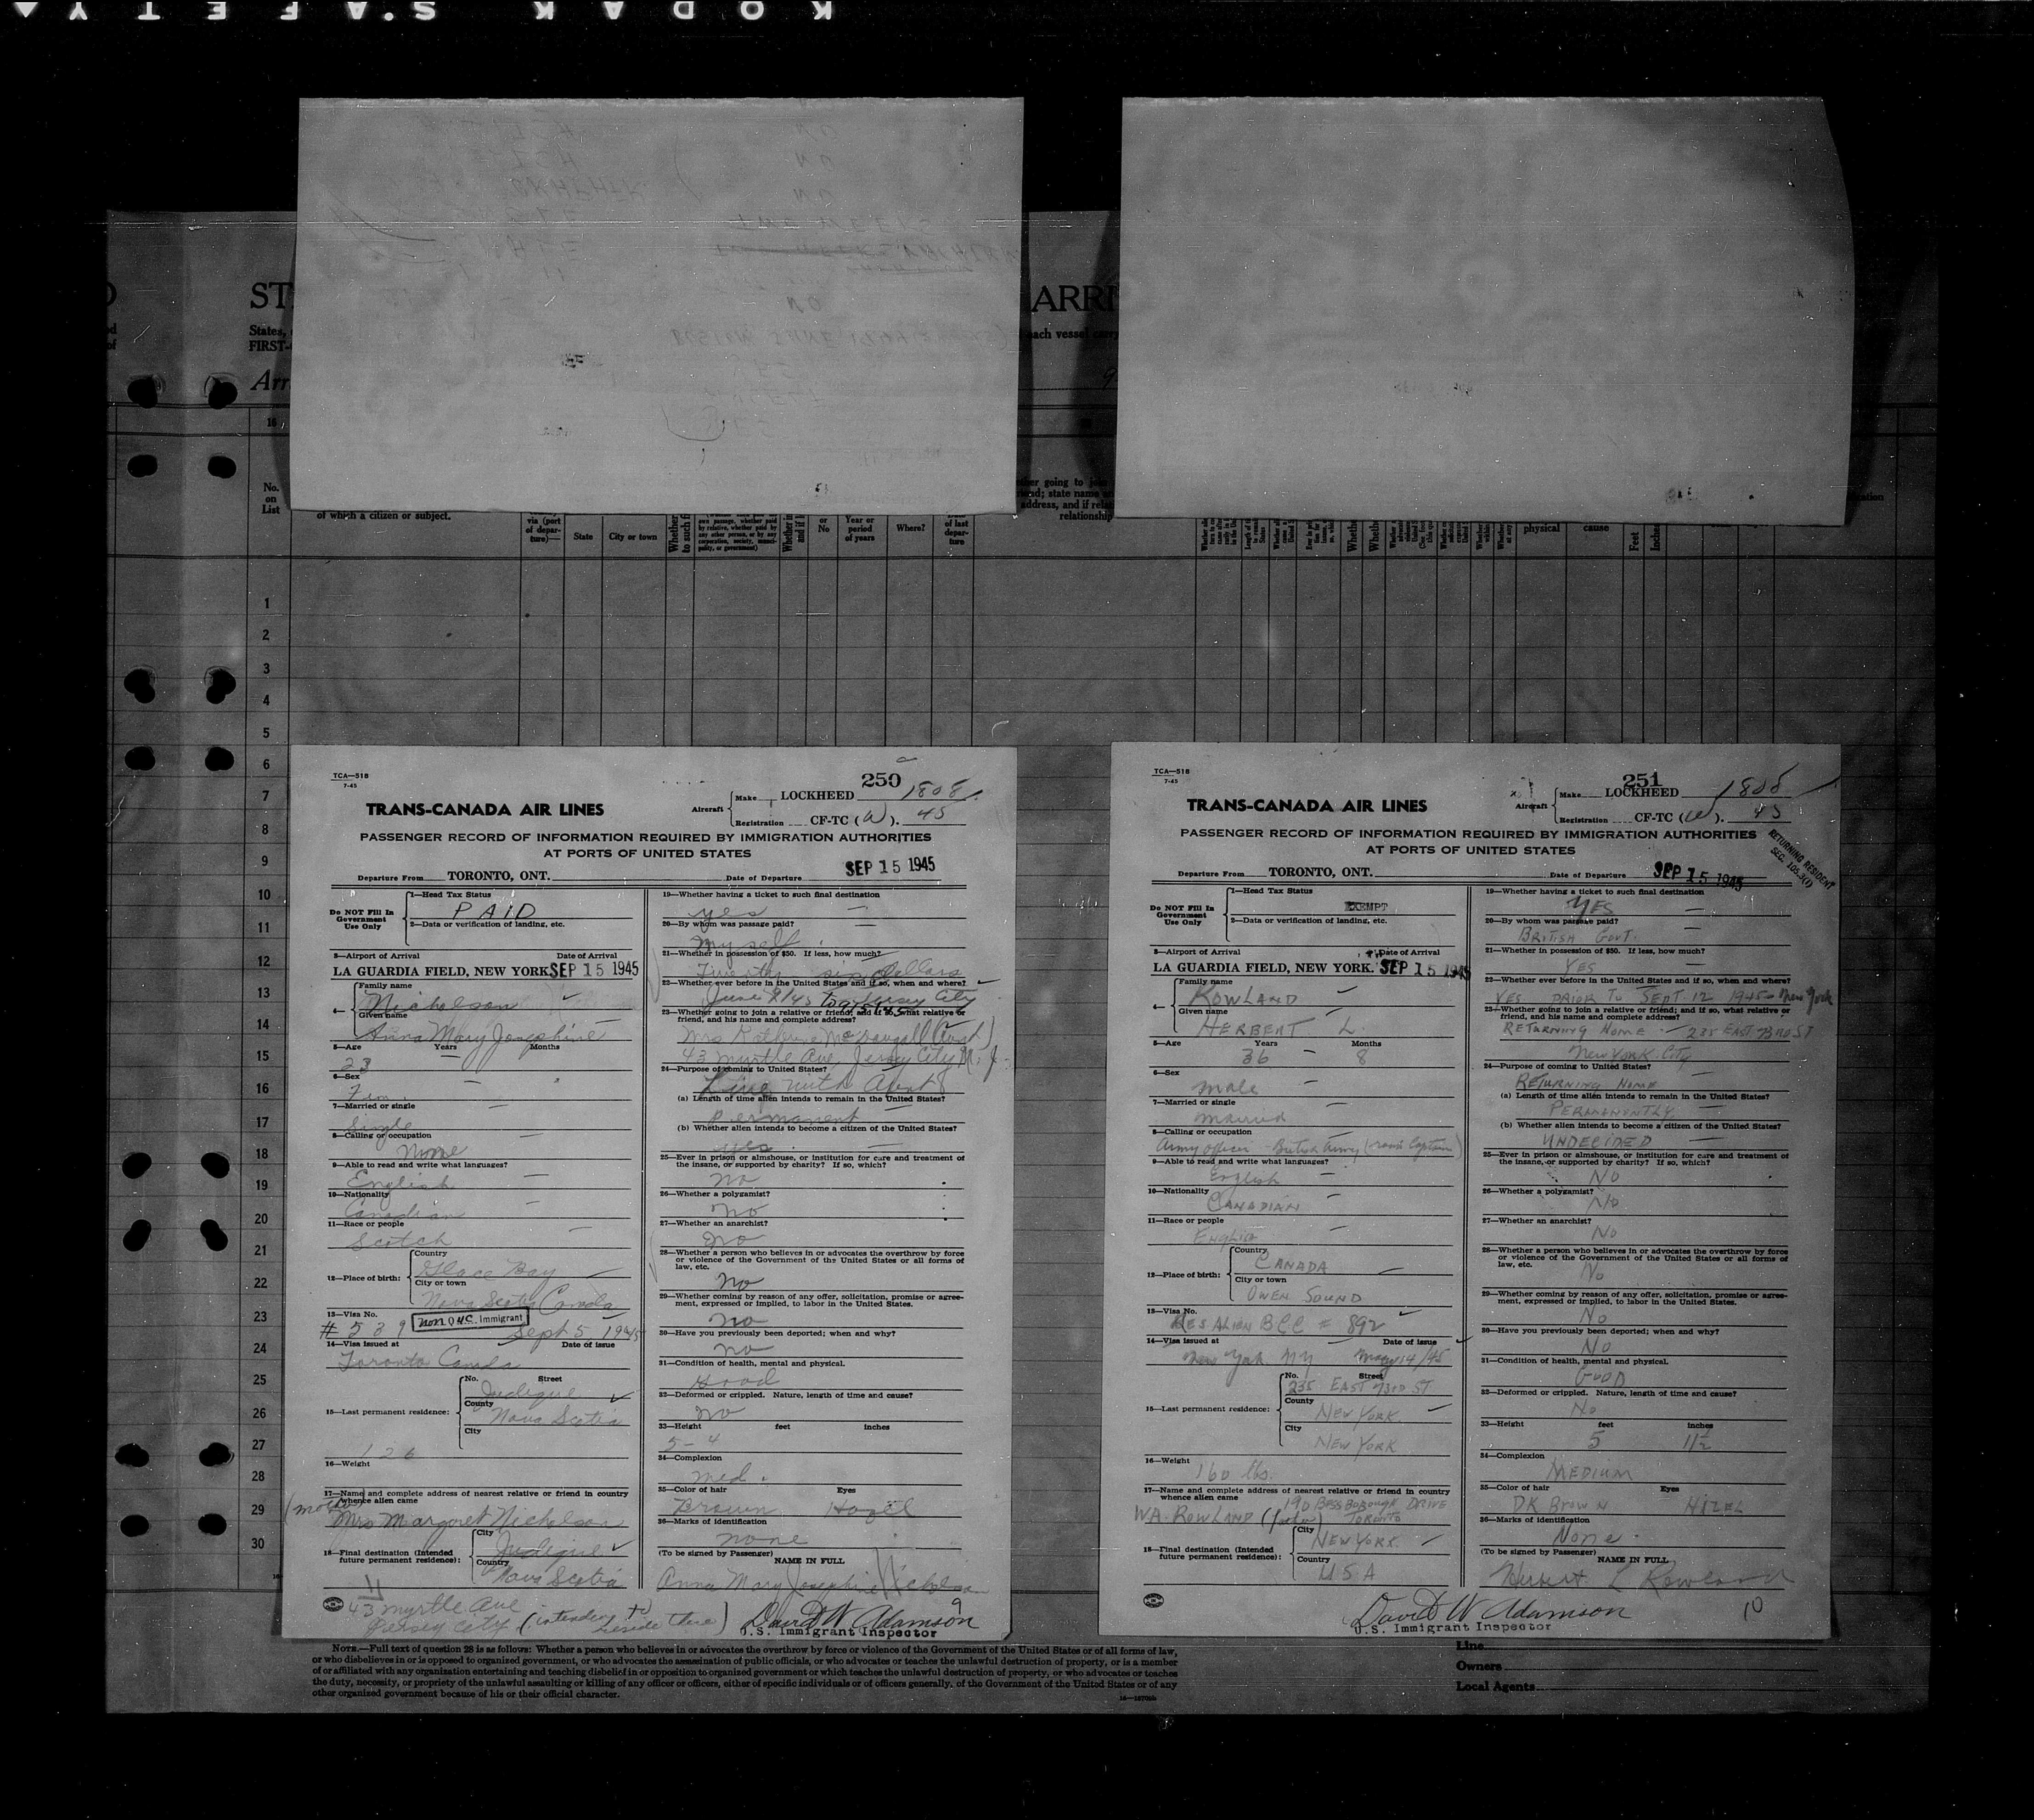 KODAK SAFETY
ST
ARRI
States,
each vessel carry
FIRST-
Arr
No. on List
of which a citizen or subject.
via (port of departure)—
State
City or town
or No
Year or period of years
Where?
Date of last departure
physical
cause
Feet
Inches
1
2
3
4
5
6
7
8
9
10
11
12
13
14
15
16
17
18
19
20
21
22
23
24
25
26
27
28
29
30
TCA—518
7-45
250
TRANS-CANADA AIR LINES
Aircraft
Make LOCKHEED 1808
Registration CF-TC (W). 45
PASSENGER RECORD OF INFORMATION REQUIRED BY IMMIGRATION AUTHORITIES
AT PORTS OF UNITED STATES
Departure From TORONTO, ONT. Date of Departure SEP 15 1945
Do NOT Fill In Government Use Only
1—Head Tax Status
PAID
2—Data or verification of landing, etc.
3—Airport of Arrival Date of Arrival
LA GUARDIA FIELD, NEW YORK SEP 15 1945
4—
Family name
Nicholson
Given name
Anna Mary Josephine
5—Age Years Months
23
6—Sex
Fem.
7—Married or single
Single
8—Calling or occupation
None
9—Able to read and write what languages?
English
10—Nationality
Canadian
11—Race or people
Scotch
12—Place of birth:
Country
Glace Bay
City or town
Nova Scotia Canada
13—Visa No.
# 539 Non quo. Immigrant Sept 5 1945
14—Visa issued at Date of issue
Toronto Canada
15—Last permanent residence:
No. Street
Judique
County
Nova Scotia
City
126
16—Weight
17—Name and complete address of nearest relative or friend in country whence alien came
(mother)
Mrs Margaret Nicholson
18—Final destination (Intended future permanent residence):
City
Judique
Country
Nova Scotia
43 Myrtle Ave
Jersey City (intending to reside there)
19—Whether having a ticket to such final destination
yes
20—By whom was passage paid?
myself
21—Whether in possession of $50. If less, how much?
Twenty six dollars
22—Whether ever before in the United States and if so, when and where?
June 9/45 to Jersey City
23—Whether going to join a relative or friend; and if so, what relative or friend, and his name and complete address?
Mrs Katherine McDougall (Aunt)
43 Myrtle Ave, Jersey City N. J.
24—Purpose of coming to United States?
Live with Aunt
(a) Length of time alien intends to remain in the United States?
Permanent
(b) Whether alien intends to become a citizen of the United States?
yes
25—Ever in prison or almshouse, or institution for care and treatment of the insane, or supported by charity? If so, which?
no
26—Whether a polygamist?
no
27—Whether an anarchist?
no
28—Whether a person who believes in or advocates the overthrow by force or violence of the Government of the United States or all forms of law, etc.
no
29—Whether coming by reason of any offer, solicitation, promise or agreement, expressed or implied, to labor in the United States.
no
30—Have you previously been deported; when and why?
no
31—Condition of health, mental and physical.
Good
32—Deformed or crippled. Nature, length of time and cause?
no
33—Height feet inches
5-4
34—Complexion
med.
35—Color of hair Eyes
Brown Hazel
36—Marks of identification
none
(To be signed by Passenger) NAME IN FULL
Anna Mary Josephine Nicholson
9
David W Adamson
U.S. Immigrant Inspector
TCA—518
7-45
251
TRANS-CANADA AIR LINES
Aircraft
Make LOCKHEED 1808
Registration CF-TC (W). 45
PASSENGER RECORD OF INFORMATION REQUIRED BY IMMIGRATION AUTHORITIES
AT PORTS OF UNITED STATES
RETURNING RESIDENT
SEC. 105.3(1)
Departure From TORONTO, ONT. Date of Departure SEP 15 1945
Do NOT Fill In Government Use Only
1—Head Tax Status
EXEMPT
2—Data or verification of landing, etc.
3—Airport of Arrival Date of Arrival
LA GUARDIA FIELD, NEW YORK. SEP 15 1945
4—
Family name
ROWLAND
Given name
HERBERT L
5—Age Years Months
36 8
6—Sex
male
7—Married or single
married
8—Calling or occupation
Army Officer - British Army (rank Captain)
9—Able to read and write what languages?
English
10—Nationality
CANADIAN
11—Race or people
ENGLISH
12—Place of birth:
Country
CANADA
City or town
OWEN SOUND
13—Visa No.
RES ALIEN BCC # 892
14—Visa issued at Date of issue
New York NY May 14/45
15—Last permanent residence:
No. Street
235 EAST 73RD ST
County
NEW YORK
City
NEW YORK
16—Weight
160 lbs.
17—Name and complete address of nearest relative or friend in country whence alien came
190 BESSBOROUGH DRIVE
W.A. ROWLAND (father) TORONTO
18—Final destination (Intended future permanent residence):
City
NEW YORK
Country
U.S.A
19—Whether having a ticket to such final destination
YES
20—By whom was passage paid?
BRITISH GOVT.
21—Whether in possession of $50. If less, how much?
YES
22—Whether ever before in the United States and if so, when and where?
YES PRIOR TO SEPT 12 1945 - New York
23—Whether going to join a relative or friend; and if so, what relative or friend, and his name and complete address?
RETURNING HOME - 235 EAST 73RD ST
NEW YORK CITY
24—Purpose of coming to United States?
RETURNING HOME
(a) Length of time alien intends to remain in the United States?
PERMANENTLY
(b) Whether alien intends to become a citizen of the United States?
UNDECIDED
25—Ever in prison or almshouse, or institution for care and treatment of the insane, or supported by charity? If so, which?
NO
26—Whether a polygamist?
NO
27—Whether an anarchist?
NO
28—Whether a person who believes in or advocates the overthrow by force or violence of the Government of the United States or all forms of law, etc.
No
29—Whether coming by reason of any offer, solicitation, promise or agreement, expressed or implied, to labor in the United States.
No
30—Have you previously been deported; when and why?
No
31—Condition of health, mental and physical.
GOOD
32—Deformed or crippled. Nature, length of time and cause?
No
33—Height feet inches
5 11½
34—Complexion
MEDIUM
35—Color of hair Eyes
DK BROWN HAZEL
36—Marks of identification
None
(To be signed by Passenger) NAME IN FULL
Herbert L Rowland
David W Adamson 10
U.S. Immigrant Inspector
NOTE.—Full text of question 28 is as follows: Whether a person who believes in or advocates the overthrow by force or violence of the Government of the United States or of all forms of law,
or who disbelieves in or is opposed to organized government, or who advocates the assassination of public officials, or who advocates or teaches the unlawful destruction of property, or is a member
of or affiliated with any organization entertaining and teaching disbelief in or opposition to organized government or which teaches the unlawful destruction of property, or who advocates or teaches
the duty, necessity, or propriety of the unlawful assaulting or killing of any officer or officers, either of specific individuals or of officers generally, of the Government of the United States or of any
other organized government because of his or their official character.
Line
Owners
Local Agents